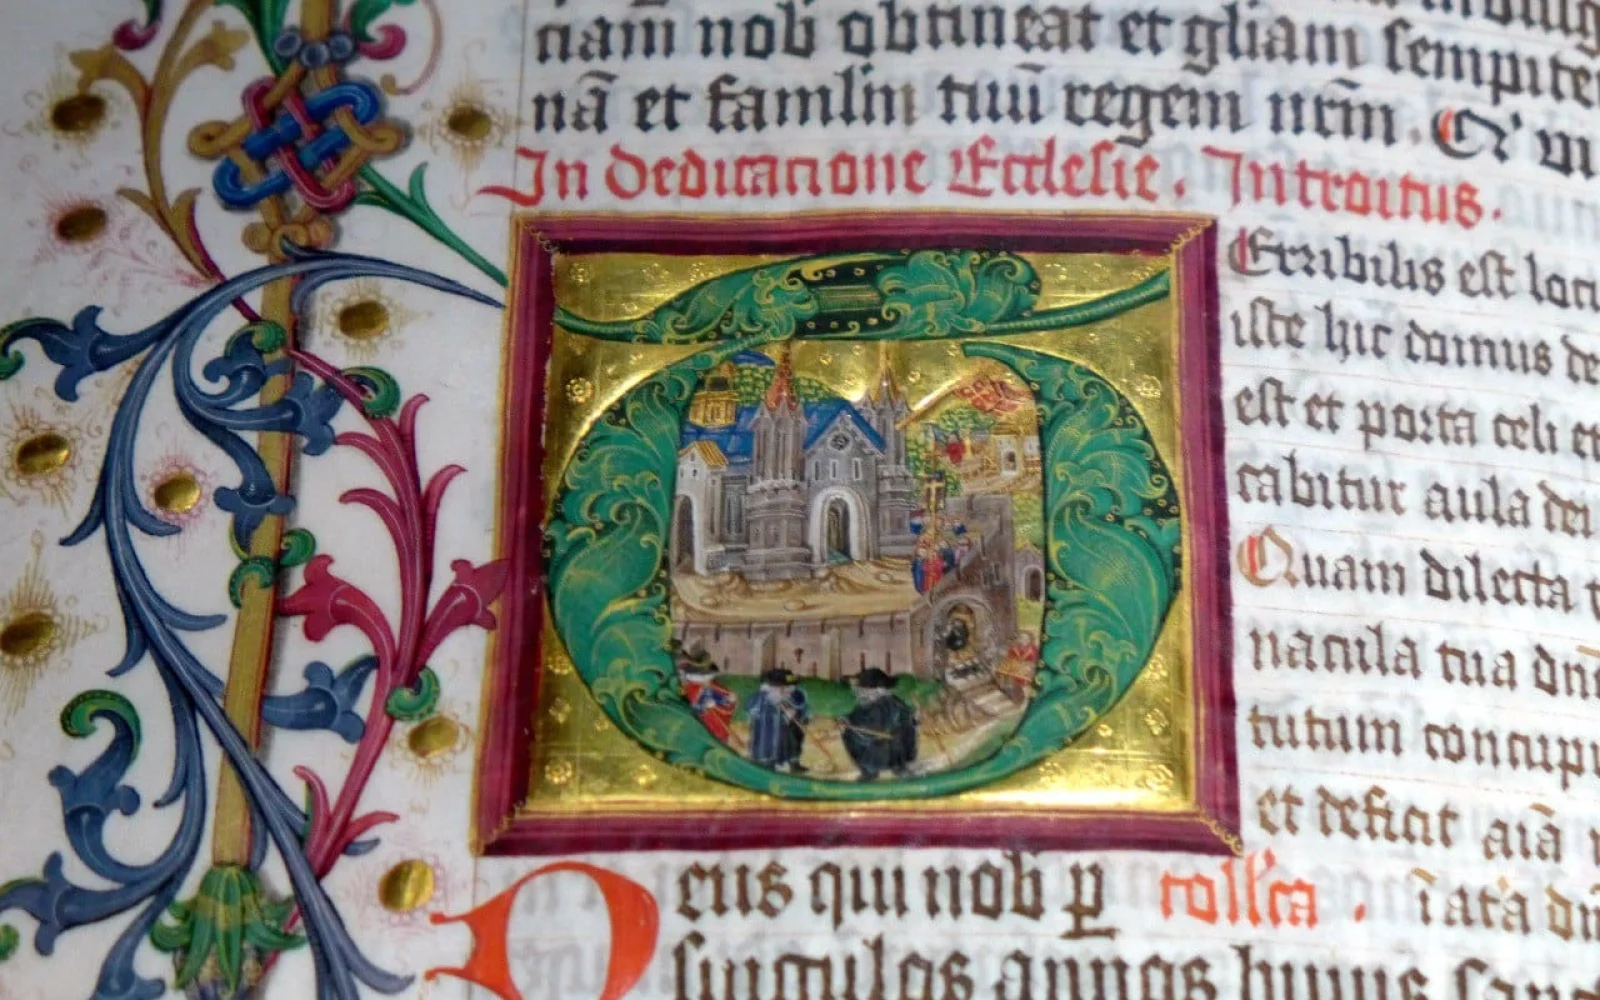 ciam nob obtineat et gliam sempite
nā et famlm tuū regem nrm. Qr vi
In dedicacione Ecclesie. Introitus.
Terribilis est locu
iste hic domus de
est et porta celi et
cabitur aula dei
Quam dilecta t
nacula tua dn̄e
tutum concupi
et deficit aīa
Deus qui nob p̱ coll'ca. īata dn
singulos annos huius sanc